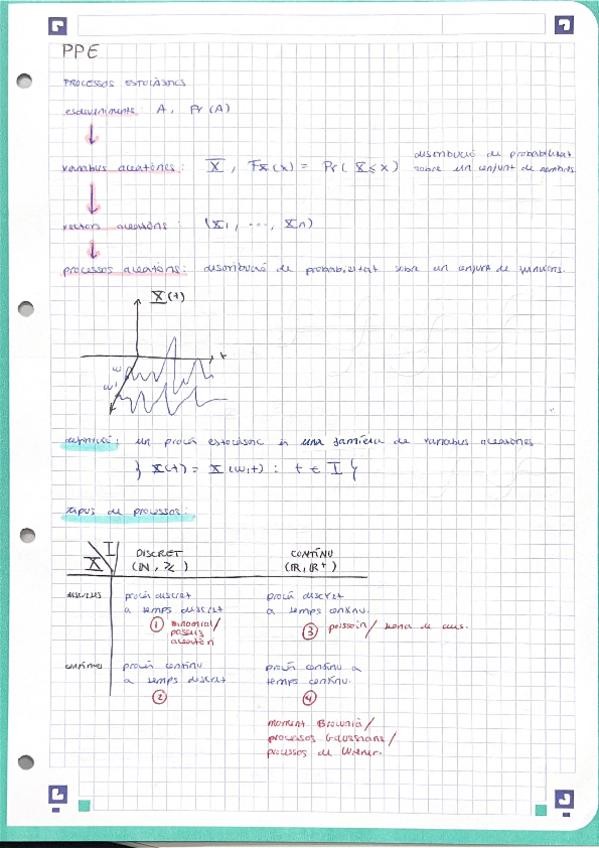 PPE
PROCESSOS ESTOCÀSTICS
esdeveniments: A, Pr(A)
variables aleatòries: X, Fx(x) = Pr(X ≤ x) distribució de probabilitat
sobre un conjunt de nombres
vectors aleatoris: (X1, ..., Xn)
processos aleatoris: distribució de probabilitat sobre un conjunt de funcions.
X(t)
t
w
w'
definició: un procés estocàstic és una família de variables aleatòries
{ X(t) = X(w,t) : t ∈ I }
tipus de processos:
I
X
DISCRET
(N, Z)
CONTÍNU
(R, R+)
discretes
procés discret
a temps discret
① Binomial/
passeig
aleatori
procés discret
a temps continu.
③ poisson/ teoria de cues.
contínues
procés continu
a temps discret
②
procés continu a
temps continu.
④
moment Brownià/
processos Gaussians/
processos de Wiener.